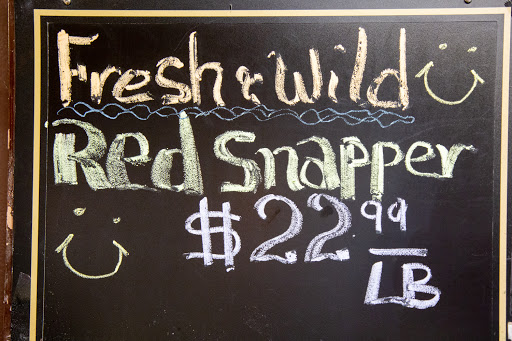 Fresh & Wild
Red Snapper
$22.99
LB